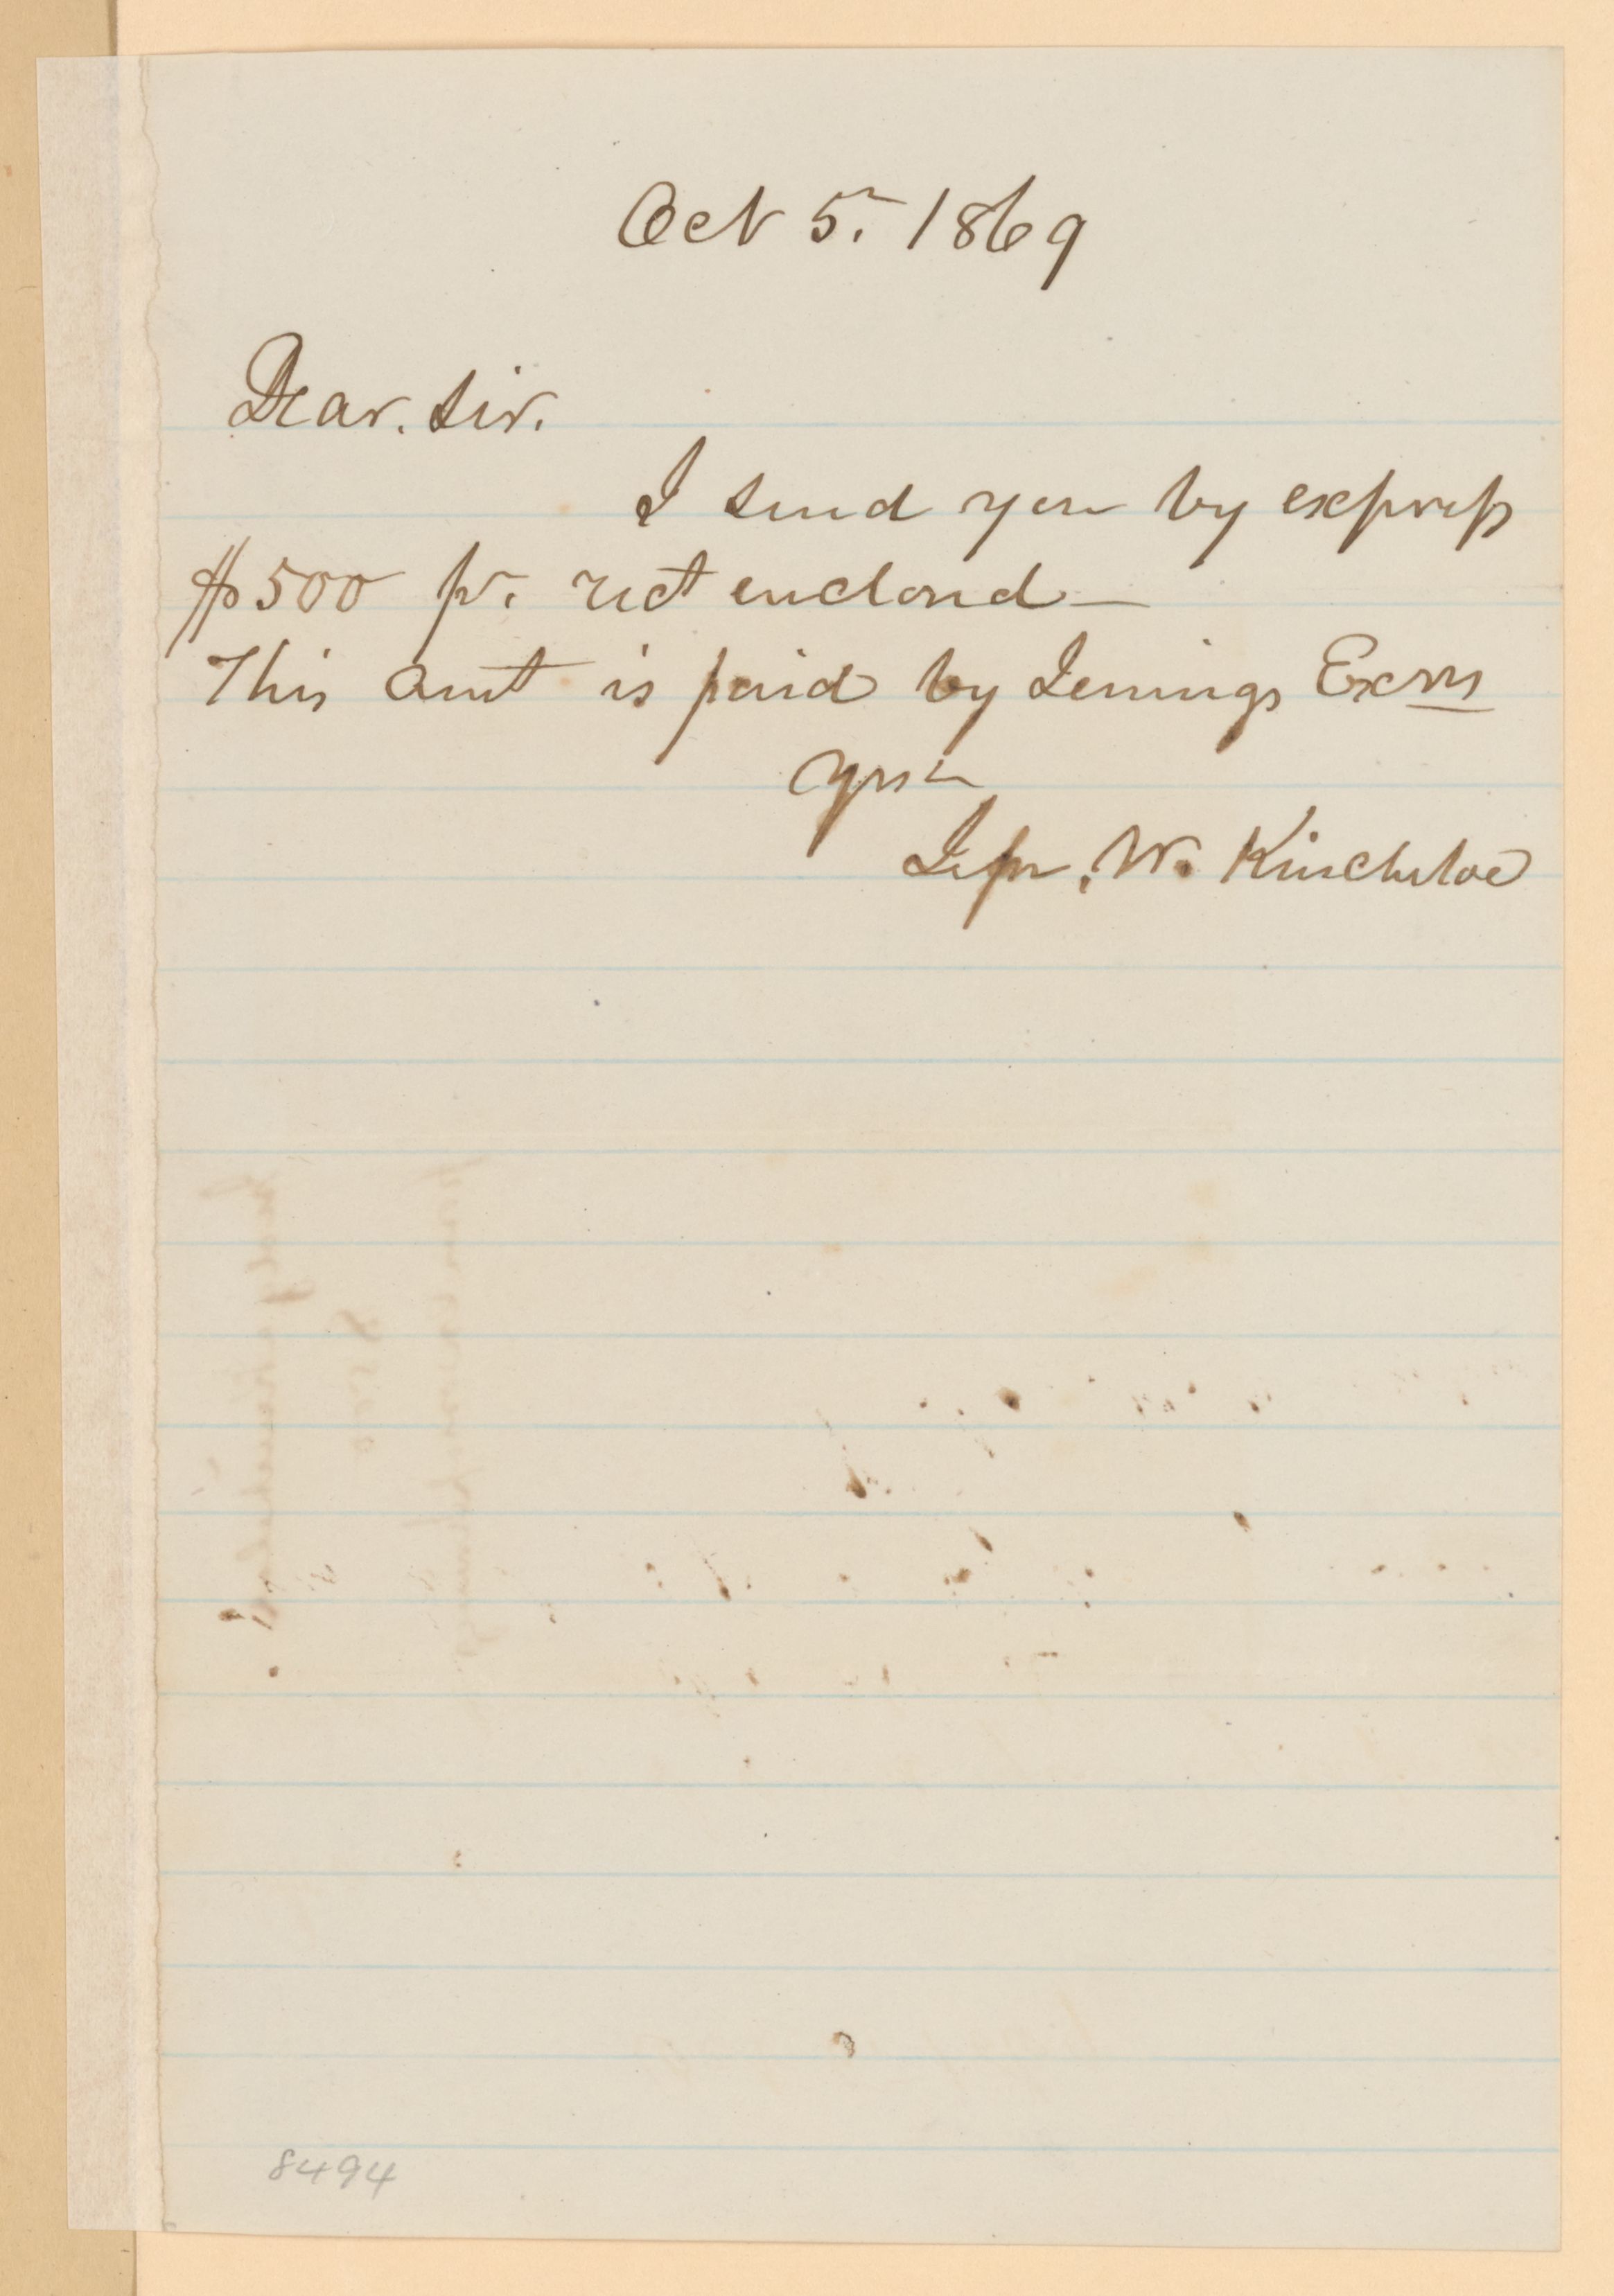 Oct 5. 1869
Dear. Sir.
I send you by express
$500 pr. rect enclosed —
This amt is paid by Jennings Exrs
Yrs
Jesse. W. Kincheloe
8494